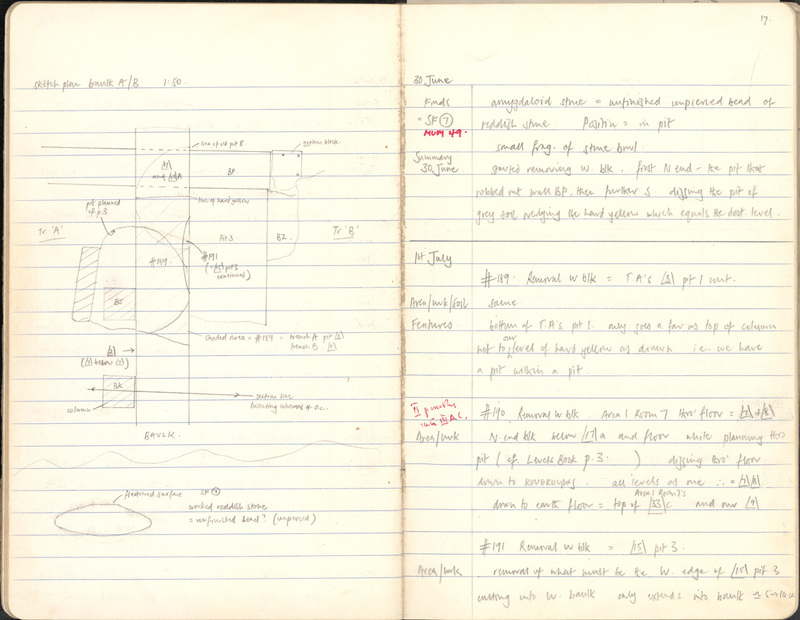 sketch plan baulk A/B 1:50.
line of old pit II
gypsum block.
/15\
and /15\A
BP
pit planned
of p.3
line of hard yellow
Tr. 'A'
#149.
#191
(=/15\ pit 3
continued)
At 3
B2.
Tr 'B'
BJ
shaded area = #189 = trench A pit
trench B
below
BK
column
section line
bisecting columns of
BAULK.
flattened surface
SF 7
worked reddish stone
= unfinished bead? (unpierced)
17.
30 June
Finds
amygdaloid stone = unfinished unpierced bead of
= SF 7
reddish stone Position = in pit
MUM 49.
small frag. of stone bowl.
Summary
30 June
started removing W blk. first N end - the pit that
robbed out wall BP. then further S digging the pit of
grey soil overlying the hard yellow which equals the dost level.
1st July
#189. Removal W blk = T.A's /3\ pt 1 cont.
Area/wk/soil
same.
Features.
bottom of T.A's pit 1. only goes as far as top of column
not to our level of hard yellow as drawn i.e. we have
a pit within a pit.
#190 Removal W blk. Area 1 Room 7 thro' floor =
Area/wk
N. end blk below /17\a and floor while planning thro
pit (cf. Levels Book p. 3. ) digging thro' floor
down to
all levels as one ∴ =
Area 1 Room 7's
down to earth floor = top of /53\c and our /9\
#191 Removal W blk = /15\ pit 3.
Area/wk
removal of what must be the W. edge of /15\ pit 3
cutting into W. baulk only extends into baulk